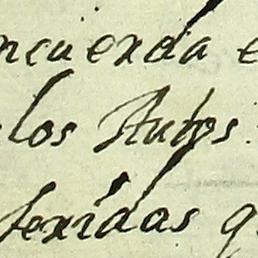 ncuenda e
los Autos
feridas q